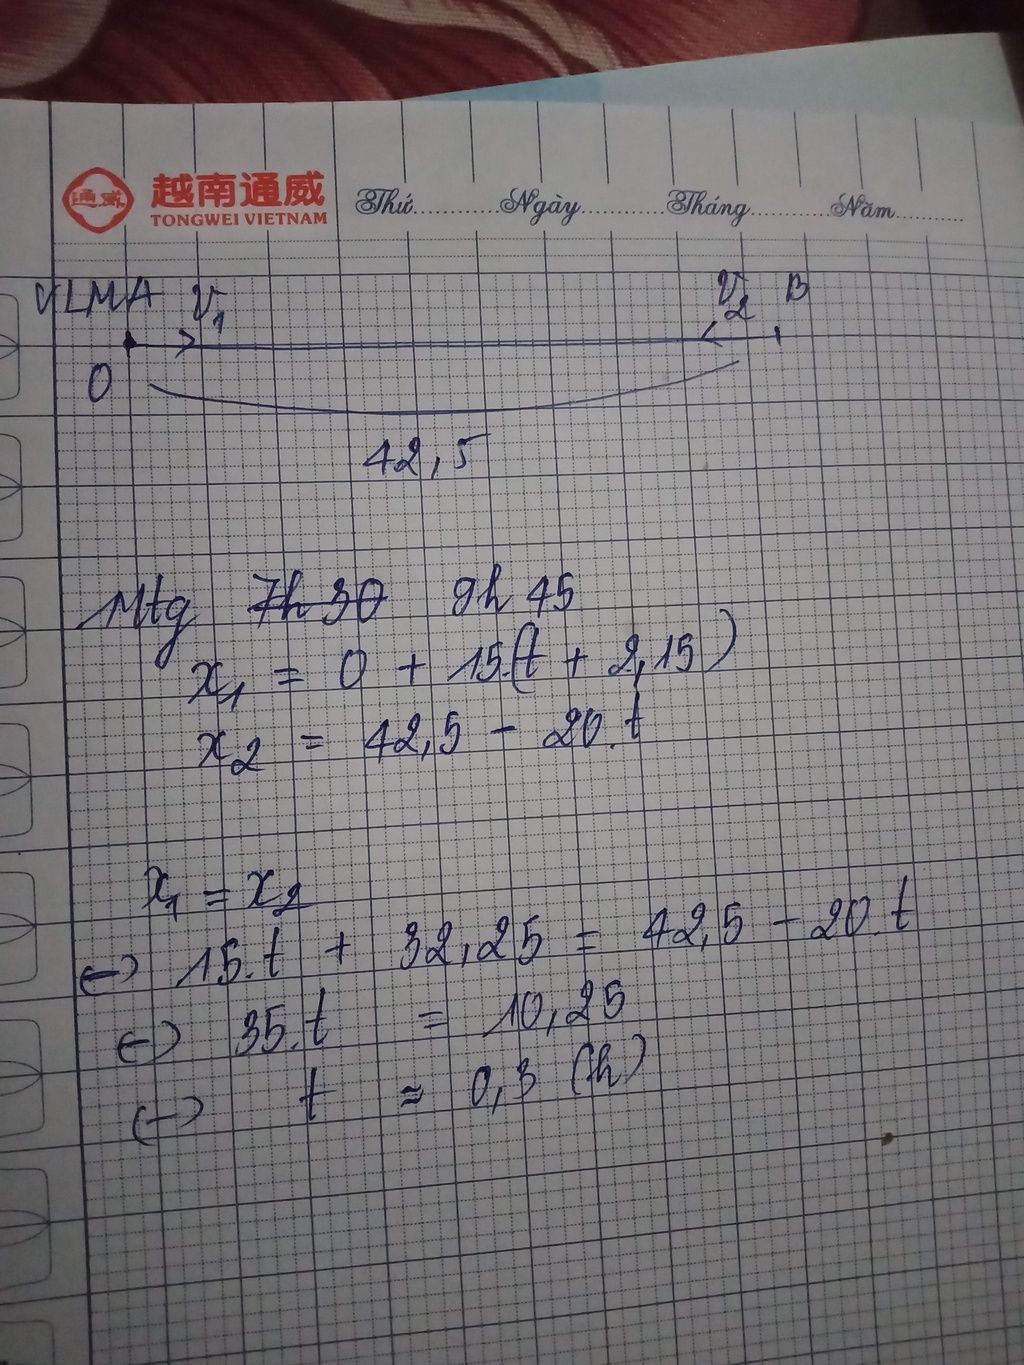 通威
越南通威
TONGWEI VIETNAM
Thứ............Ngày............Tháng...........Năm..........
VLMA V₁ V₂ B
O
42,5
Mtg 7h30 9h45
x₁ = 0 + 15.(t + 2,15)
x₂ = 42,5 - 20.t
x₁ = x₂
(-) 15.t + 32,25 = 42,5 - 20.t
(-) 35.t = 10,25
(-) t ≈ 0,3 (h)